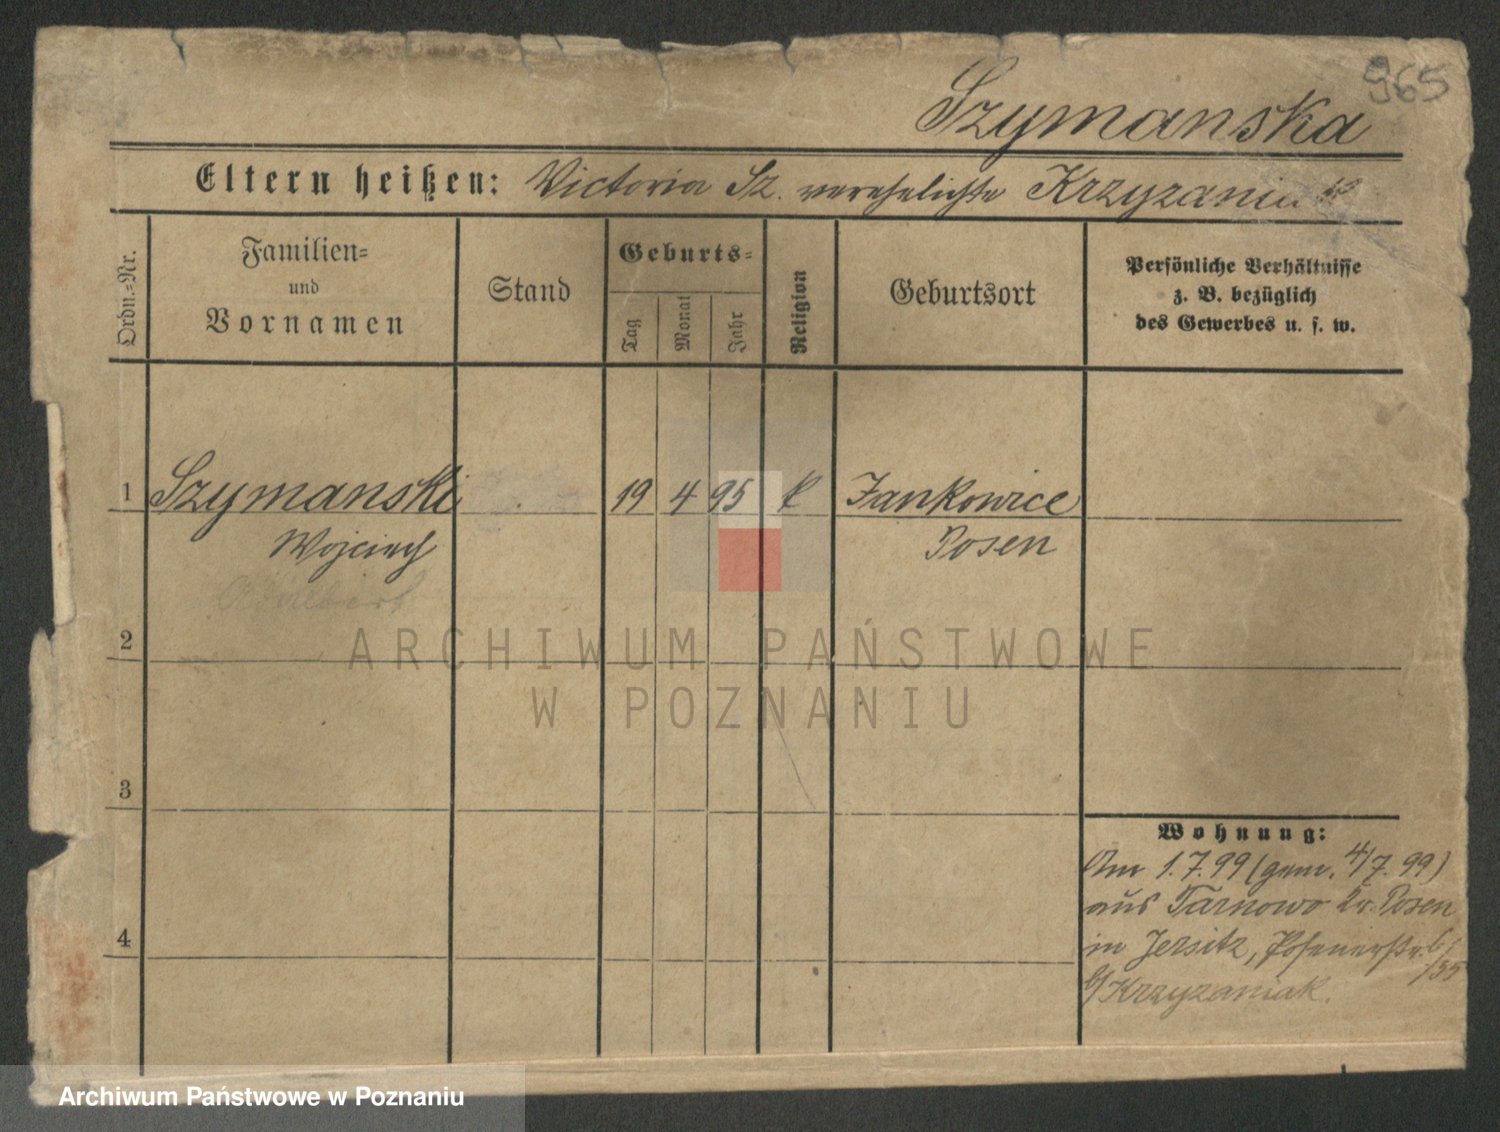 965
Szymanska
Eltern heißen: Victoria Sz. verehelichte Krzyzaniak
Ordn.-Nr.
Familien-
und
Vornamen
Stand
Geburts-
Tag
Monat
Jahr
Religion
Geburtsort
Persönliche Verhältnisse
z. B. bezüglich
des Gewerbes u. s. w.
1 Szymanski 19 4 95 k Jankowice
Wojciech Posen
Adalbert
2
3
4
Wohnung:
Am 1.7.99 (gem. 4/7. 99)
aus Tarnowo Kr. Posen
in Jersitz, Posenerstr.
b/Krzyzaniak.
ARCHIWUM PAŃSTWOWE
W POZNANIU
Archiwum Państwowe w Poznaniu